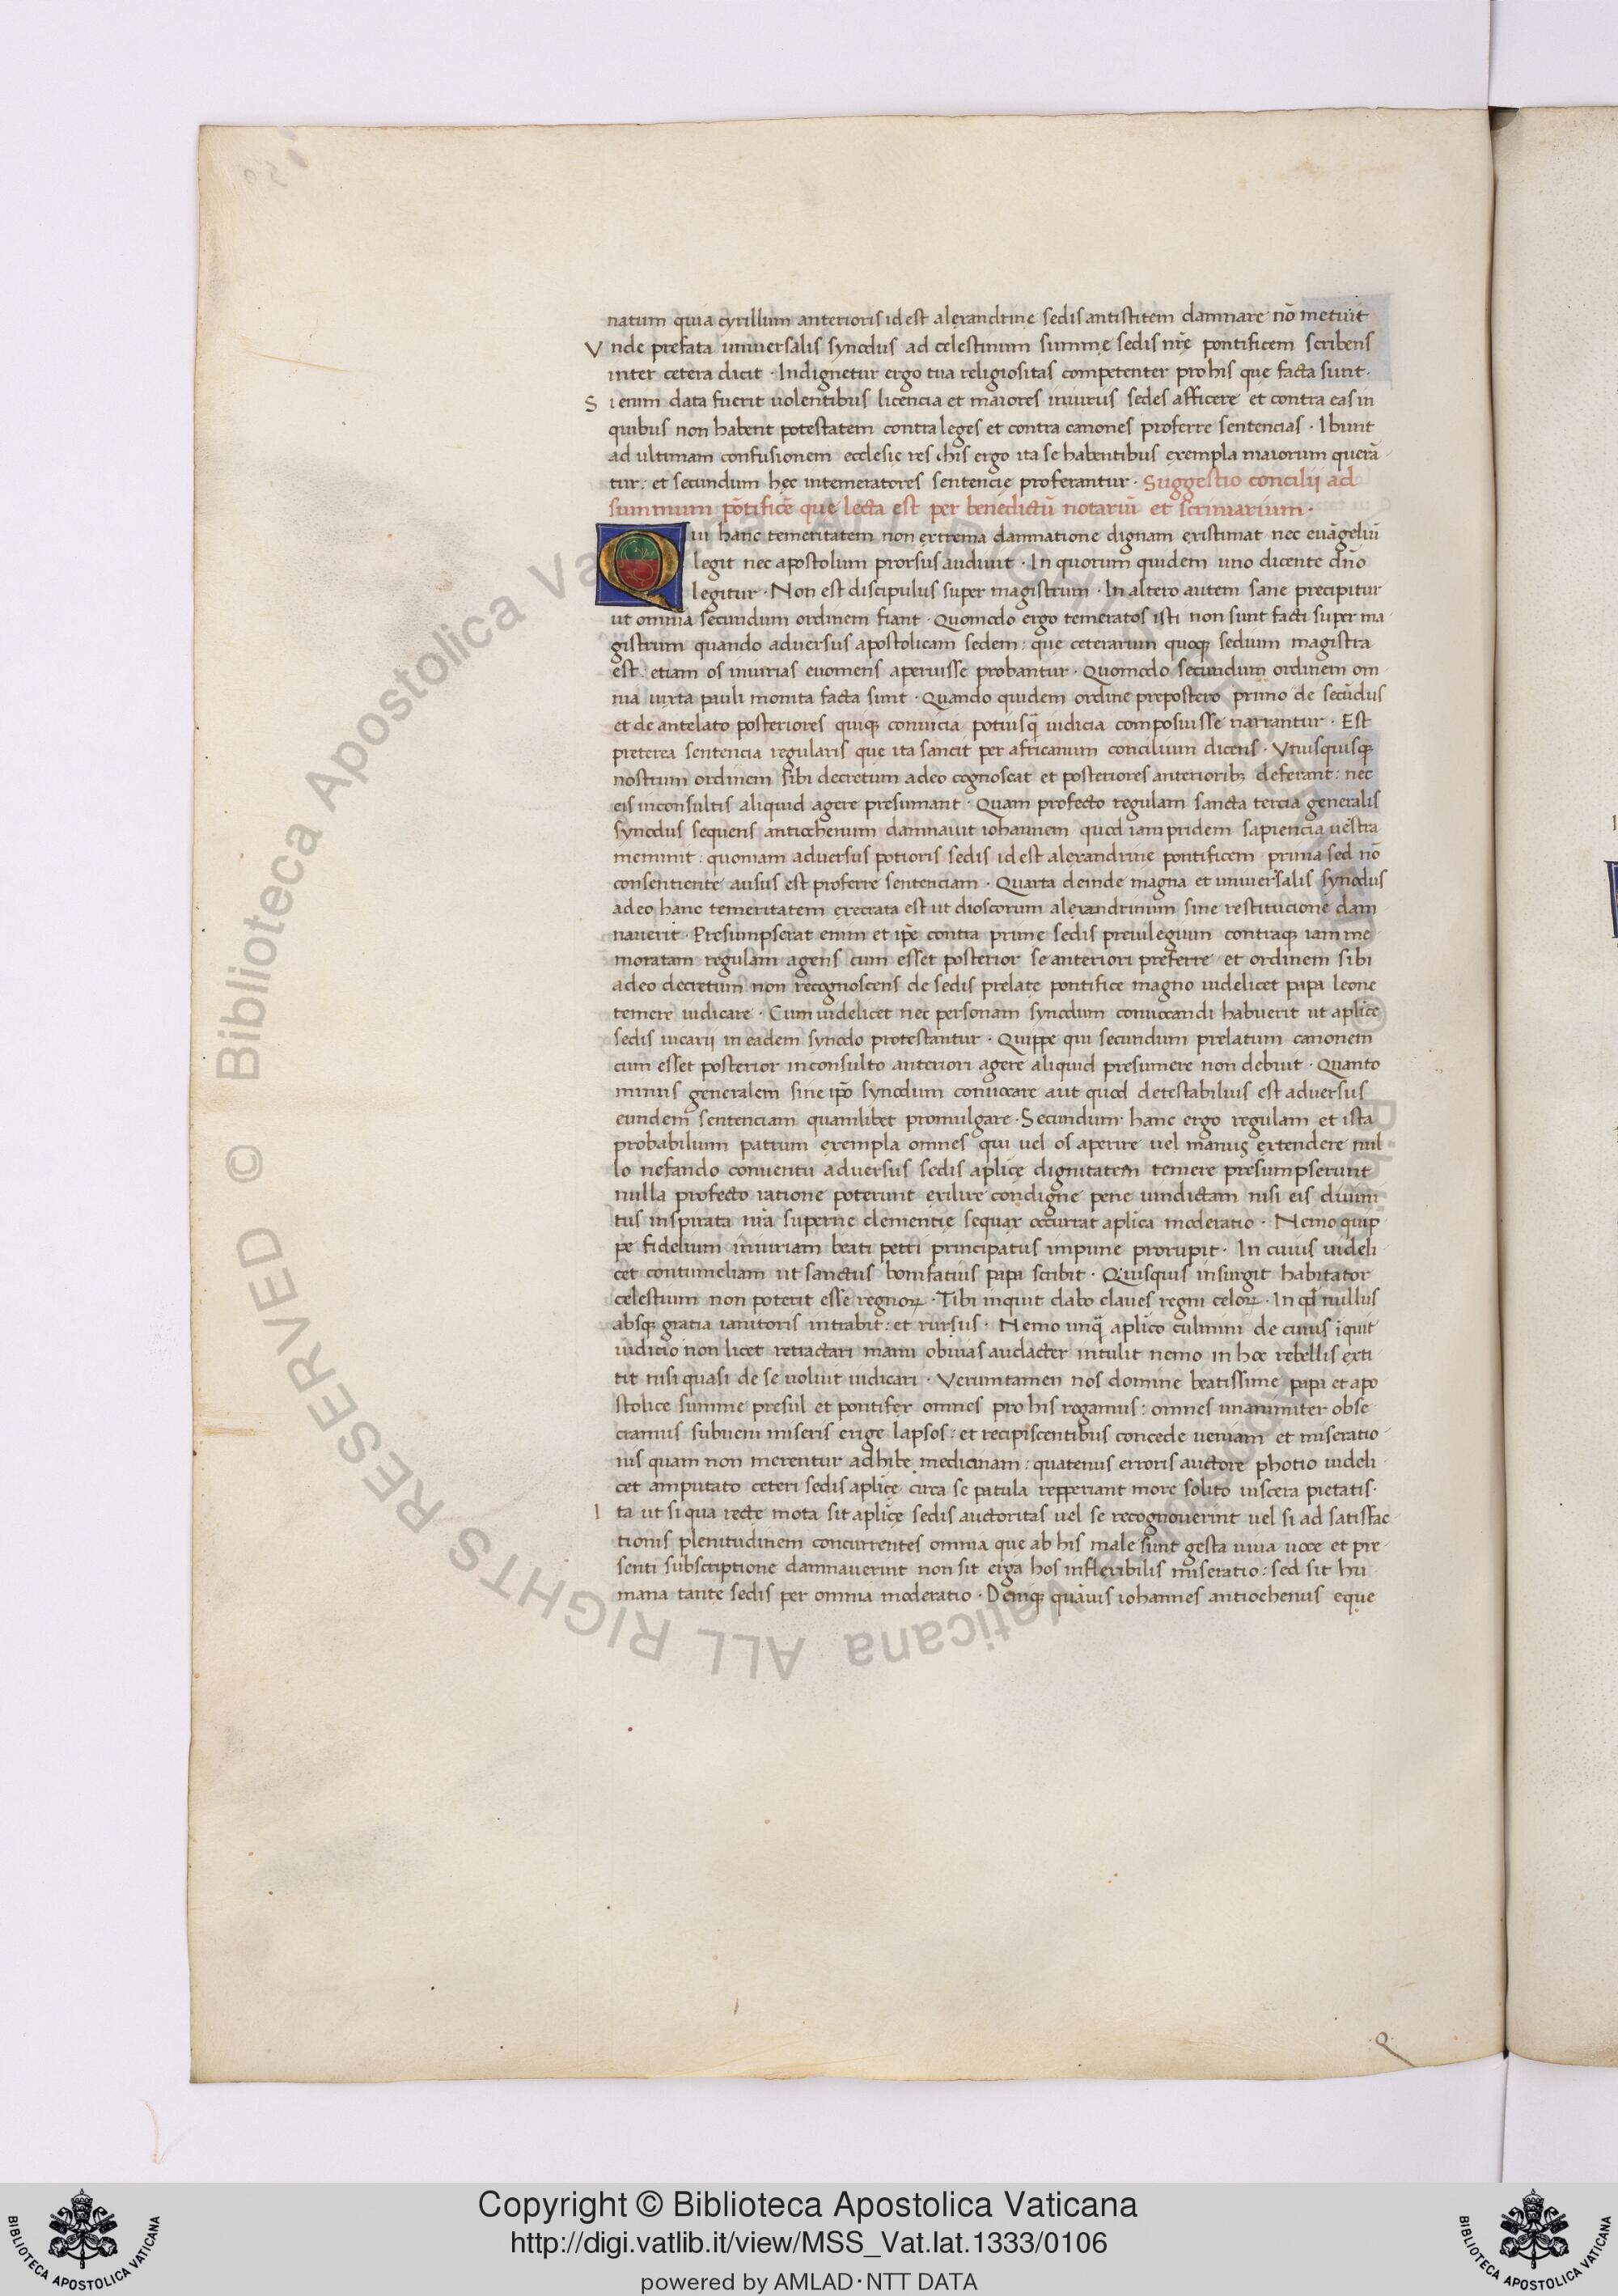 natum quia cyrillum anterioris id est alexandrinę sedis antistitem damnare nō metuit
Vnde prefata uniuersalis synodus ad celestinum summę sedis nr̄ę pontificem scribens
inter cetera dicit · Indignetur ergo tua religiositas competenter pro his que facta sunt ·
Si enim data fuerit uolentibus licencia et maiores iniuriis sedes afficere et contra eas in
quibus non habent potestatem contra leges et contra canones proferre sentencias · Ibunt
ad ultimam confusionem ecclesie res his ergo ita se habentibus exempla maiorum querā
tur : et secundum hec intemeratores sentencię proferantur · Suggestio concilii ad
summum pōtificē que lecta est per benedictū notariū et scriniarium ·
Qui hanc temeritatem non extrema damnatione dignam existimat nec euāgeliū
legit nec apostolum prorsus audiuit · In quorum quidem uno dicente dn̄o
legitur · Non est discipulus super magistrum · In altero autem sane precipitur
ut omnia secundum ordinem fiant · Quomodo ergo temeratos isti non sunt facti super ma
gistrum quando aduersus apostolicam sedem : que ceterarum quoq; sedium magistra
est : etiam os iniurias euomens aperuisse probantur · Quomodo secundum ordinem om
nia iuxta pauli monita facta sunt · Quando quidem ordine prepostero primo de secūdus
et de antelato posteriores quiq; conuicia potiusq̄ iudicia composuisse narrantur · Est
preterea sentencia regularis que ita sancit per africanum concilium dicens · Vnusquisq;
nostrum ordinem sibi decretum a deo cognoscat et posteriores anteriorib; deferant : nec
eis inconsultis aliquid agere presumant · Quam profecto regulam sancta tercia generalis
synodus sequens antiochenum damnauit iohannem quod iam pridem sapiencia uestra
meminit : quoniam aduersus potioris sedis id est alexandrine pontificem prima sed nō
consentiente ausus est proferre sentenciam · Quarta deinde magna et uniuersalis synodus
adeo hanc temeritatem execrata est ut dioscorum alexandrinum sine restitucione dam
nauerit · Presumpserat enim et ip̄e contra prime sedis preuilegium contraq; iam me
moratam regulam agens cum esset posterior se anteriori preferre et ordinem sibi
a deo decretum non recognoscens de sedis prelatę pontifice magno uidelicet papa leone
temere iudicare · Cum uidelicet nec personam synodum conuocandi habuerit ut aplice
sedis uicarii in eadem synodo protestantur · Quippe qui secundum prelatum canonem
cum esset posterior inconsulto anteriori agere aliquid presumere non debuit · Quanto
minus generalem sine ip̄o synodum conuocare aut quod detestabilius est aduersus
eundem sentenciam quamlibet promulgare · Secundum hanc ergo regulam et ista
probabilium patrum exempla omnes qui uel os aperire uel manus extendere nul
lo nefando conuentu aduersus sedis aplicę dignitatem temere presumpserunt
nulla profecto ratione poterunt exilire condigne pene uindictam nisi eis diuini
tus inspirata nr̄a superne clementię sequax occurrat aplica moderatio · Nemo quip
pe fidelium iniuriam beati petri principatus impune prorupit · In cuius uideli
cet contumeliam ut sanctus bonifatius papa scribit · Quisquis insurgit habitator
celestium non poterit esse regnoꝝ · Tibi inquit dabo claues regni celoꝝ · In qđ nullus
absq; gratia ianitoris intrabit : et rursus · Nemo unq̄ aplico culmini de cuius īquit
iudicio non licet retractari manu obuias audacter intulit nemo in hoc rebellis exti
tit nisi quasi de se uoluit iudicari · Veruntamen nos domine beatissime papa et apo
stolice summe presul et pontifex omnes pro his rogamus : omnes unanimiter obse
cramus subueni miseris erige lapsos : et recipiscentibus concede ueniam et miseratio
nis quam non merentur adhibe medicinam : quatenus erroris auctore photio uideli
cet amputato ceteri sedis aplicę circa se patula repperiant more solito uiscera pietatis ·
Ita ut si qua recte mota sit aplicę sedis auctoritas uel se recognouerint uel si ad satisfac
tionis plenitudinem concurrentes omnia que ab his male sunt gesta uiua uoce et pre
senti subscriptione damnauerint non sit erga hos inflexibilis miseratio : sed sit hu
mana tantę sedis per omnia moderatio · Deniq; quāuis iohannes antiochenus eque
Copyright © Biblioteca Apostolica Vaticana
http://digi.vatlib.it/view/MSS_Vat.lat.1333/0106
powered by AMLAD·NTT DATA
BIBLIOTECA APOSTOLICA VATICANA
BIBLIOTECA APOSTOLICA VATICANA
© Biblioteca Apostolica Vaticana ALL RIGHTS RESERVED